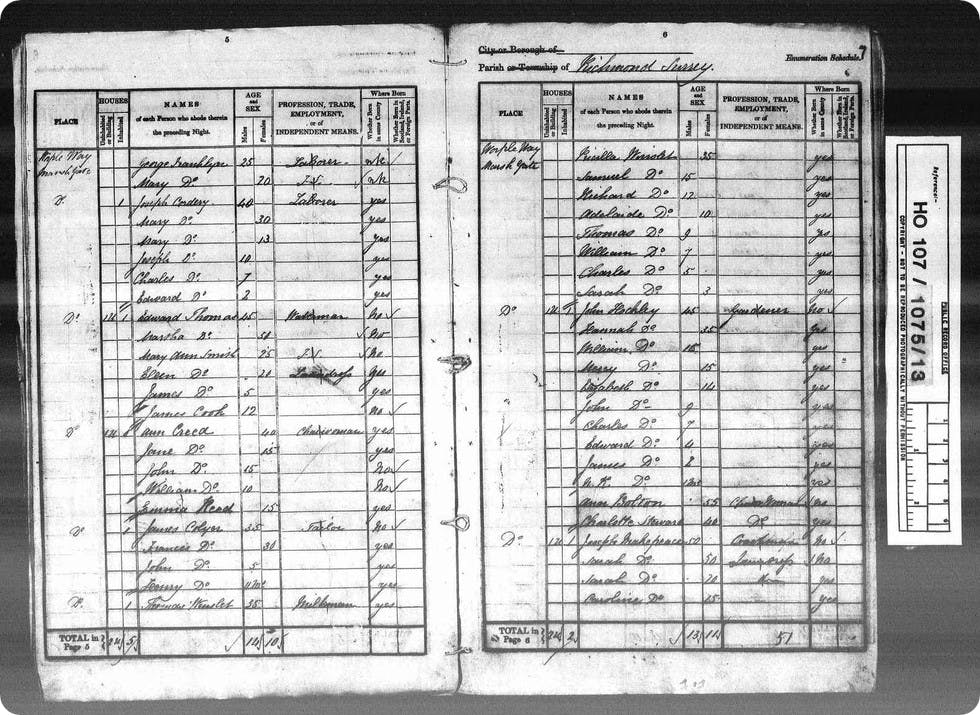 5
PLACE
HOUSES
Uninhabited or Building
Inhabited
NAMES
of each Person who abode therein the preceding Night.
AGE and SEX
Males
Females
PROFESSION, TRADE, EMPLOYMENT, or of INDEPENDENT MEANS.
Where Born
Whether Born in same County
Whether Born in Scotland, Ireland, or Foreign Parts.
Worple Way
Marsh Gate
George Franklyn 25 Laborer
Mary Do 20
Do 1 Joseph Cordery 40 Laborer yes
Mary Do 30 yes
Mary Do 13 yes
Joseph Do 10 yes
Charles Do 7 yes
Edward Do 2 yes
Do 1 Edward Thomas 45 Waterman No
Martha Do 50 No
Mary Ann Smith 25 No
Ellen Do 20 Laundress yes
James Do 5 yes
James Cook 12 No
Do Ann Creed 40 Charwoman yes
Jane Do 15 yes
John Do 15 No
William Do 10 No
Emma Head 15 yes
Do James Colyer 35 Tailor No
Frances Do 30 yes
John Do 5 yes
Henry Do yes
Do 1 Thomas 35 Milkman yes
TOTAL in Page 5 5 14 10
6
City or Borough of
Parish or Township of Richmond Surrey
Enumeration Schedule.
7
PLACE
HOUSES
Uninhabited or Building
Inhabited
NAMES
of each Person who abode therein the preceding Night.
AGE and SEX
Males
Females
PROFESSION, TRADE, EMPLOYMENT, or of INDEPENDENT MEANS.
Where Born
Whether Born in same County
Whether Born in Scotland, Ireland, or Foreign Parts.
Worple Way
Marsh Gate
35 yes
Samuel Do 15 yes
Richard Do 12 yes
Adelaide Do 10 yes
Thomas Do 9 yes
William Do 7 yes
Charles Do 5 yes
Sarah Do 3 yes
Do 1 John Hockley 45 Gardener No
Hannah Do 35 yes
William Do 15 yes
Do 15 yes
Elizabeth Do 14 yes
John Do 9 yes
Charles Do 7 yes
Edward Do 4 yes
James Do 2 yes
N. K. Do yes
Ann Bolton 55 yes
Charlotte Steward 40 Do yes
Do 1 Joseph Makepeace 50 Coachman No
Sarah Do 50 Laundress No
Sarah Do 20 yes
Caroline Do 15 yes
TOTAL in Page 6 2 13 11
51
Reference:-
HO 107 / 1075/13
PUBLIC RECORD OFFICE
COPYRIGHT - NOT TO BE REPRODUCED PHOTOGRAPHICALLY WITHOUT PERMISSION